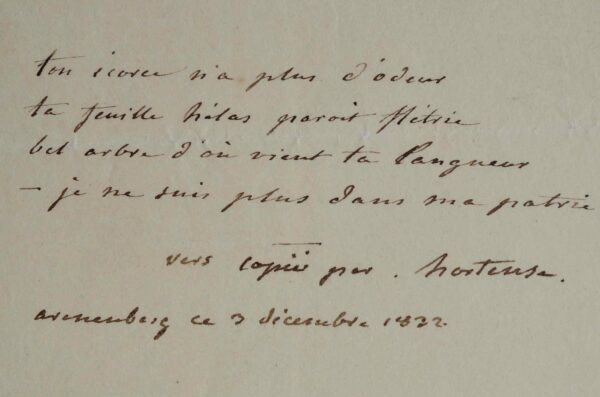 ton écorce n'a plus d'odeur
ta feuille hélas paroit flétrie
bel arbre d'où vient ta langueur
— je ne suis plus dans ma patrie
vers copié par . hortense.
arenenberg ce 3 décembre 1832.